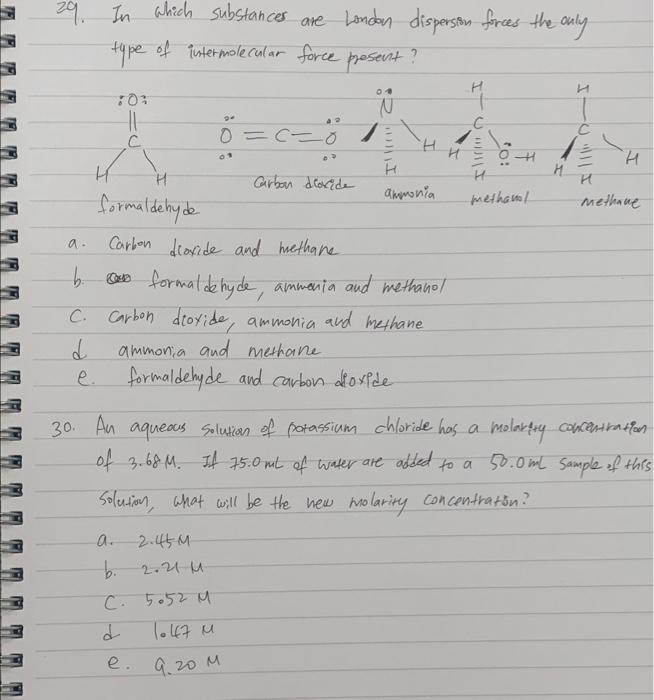 29. In which substances are London dispersion forces the only
type of intermolecular force present?
:O:
||
C
H H
formaldehyde
O=C=O
Carbon dioxide
N
H
H
ammonia
H
C
H O-H
H
methanol
H
C
H H
H
methane
a. Carbon dioxide and methane
b. formaldehyde, ammonia and methanol
c. Carbon dioxide, ammonia and methane
d ammonia and methane
e. formaldehyde and carbon dioxide
30. An aqueous solution of potassium chloride has a molarity concentration
of 3.68M. If 75.0 mL of water are added to a 50.0 mL sample of this
solution, what will be the new molarity concentration?
a. 2.45 M
b. 2.21 M
c. 5.52 M
d 1.47 M
e. 9.20 M